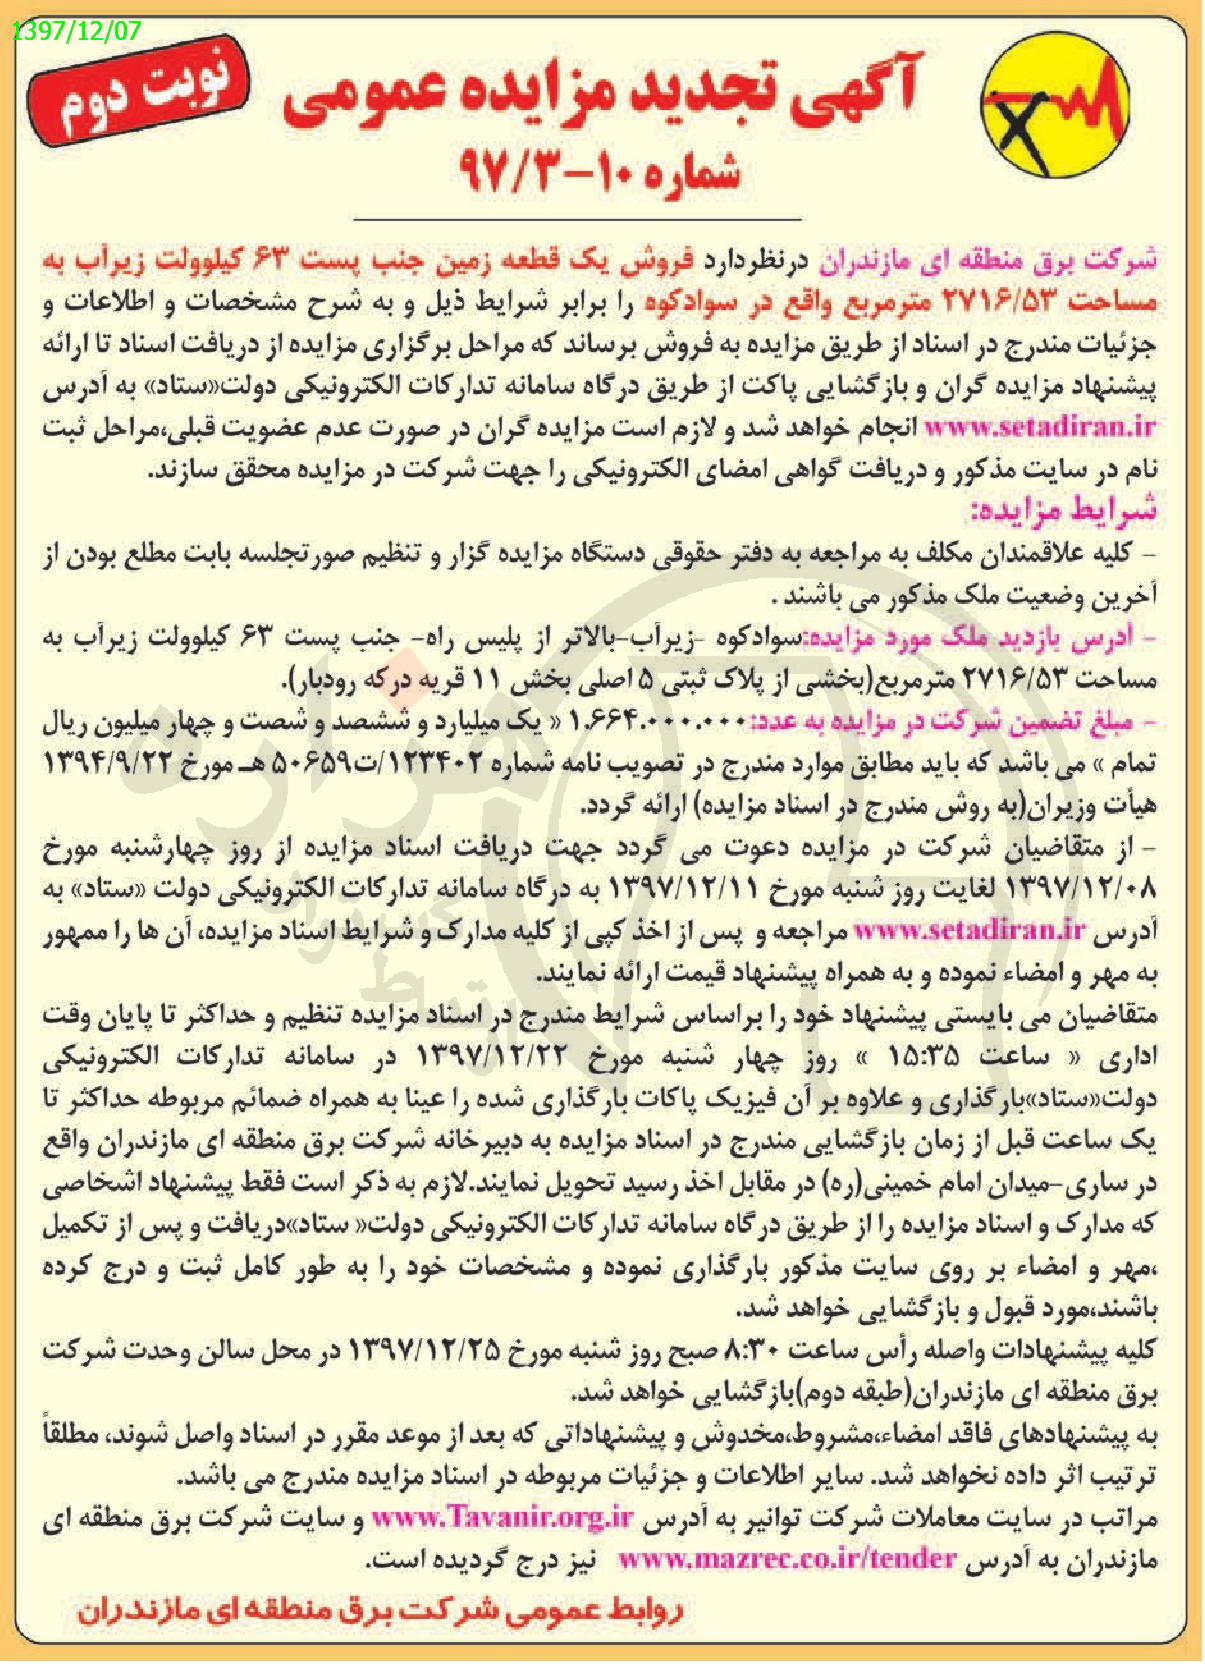 1397/12/07
نوبت دوم
آگهی تجدید مزایده عمومی
شماره ۱۰-۹۷/۳
شرکت برق منطقه ای مازندران درنظردارد فروش یک قطعه زمین جنب پست ۶۳ کیلوولت زیرآب به
مساحت ۲۷۱۶/۵۳ مترمربع واقع در سوادکوه را برابر شرایط ذیل و به شرح مشخصات و اطلاعات و
جزئیات مندرج در اسناد از طریق مزایده به فروش برساند که مراحل برگزاری مزایده از دریافت اسناد تا ارائه
پیشنهاد مزایده گران و بازگشایی پاکت از طریق درگاه سامانه تدارکات الکترونیکی دولت«ستاد» به آدرس
www.setadiran.ir انجام خواهد شد و لازم است مزایده گران در صورت عدم عضویت قبلی،مراحل ثبت
نام در سایت مذکور و دریافت گواهی امضای الکترونیکی را جهت شرکت در مزایده محقق سازند.
شرایط مزایده:
- کلیه علاقمندان مکلف به مراجعه به دفتر حقوقی دستگاه مزایده گزار و تنظیم صورتجلسه بابت مطلع بودن از
آخرین وضعیت ملک مذکور می باشند .
- آدرس بازدید ملک مورد مزایده:سوادکوه -زیرآب-بالاتر از پلیس راه- جنب پست ۶۳ کیلوولت زیرآب به
مساحت ۲۷۱۶/۵۳ مترمربع(بخشی از پلاک ثبتی ۵ اصلی بخش ۱۱ قریه درکه رودبار).
- مبلغ تضمین شرکت در مزایده به عدد:۱.۶۶۴.۰۰۰.۰۰۰ « یک میلیارد و ششصد و شصت و چهار میلیون ریال
تمام » می باشد که باید مطابق موارد مندرج در تصویب نامه شماره ۱۲۳۴۰۲/ت۵۰۶۵۹ هـ مورخ ۱۳۹۴/۹/۲۲
هیأت وزیران(به روش مندرج در اسناد مزایده) ارائه گردد.
- از متقاضیان شرکت در مزایده دعوت می گردد جهت دریافت اسناد مزایده از روز چهارشنبه مورخ
۱۳۹۷/۱۲/۰۸ لغایت روز شنبه مورخ ۱۳۹۷/۱۲/۱۱ به درگاه سامانه تدارکات الکترونیکی دولت «ستاد» به
آدرس www.setadiran.ir مراجعه و پس از اخذ کپی از کلیه مدارک و شرایط اسناد مزایده، آن ها را ممهور
به مهر و امضاء نموده و به همراه پیشنهاد قیمت ارائه نمایند.
متقاضیان می بایستی پیشنهاد خود را براساس شرایط مندرج در اسناد مزایده تنظیم و حداکثر تا پایان وقت
اداری « ساعت ۱۵:۳۵ » روز چهار شنبه مورخ ۱۳۹۷/۱۲/۲۲ در سامانه تدارکات الکترونیکی
دولت«ستاد»بارگذاری و علاوه بر آن فیزیک پاکات بارگذاری شده را عینا به همراه ضمائم مربوطه حداکثر تا
یک ساعت قبل از زمان بازگشایی مندرج در اسناد مزایده به دبیرخانه شرکت برق منطقه ای مازندران واقع
در ساری-میدان امام خمینی(ره) در مقابل اخذ رسید تحویل نمایند.لازم به ذکر است فقط پیشنهاد اشخاصی
که مدارک و اسناد مزایده را از طریق درگاه سامانه تدارکات الکترونیکی دولت« ستاد»دریافت و پس از تکمیل
،مهر و امضاء بر روی سایت مذکور بارگذاری نموده و مشخصات خود را به طور کامل ثبت و درج کرده
باشند،مورد قبول و بازگشایی خواهد شد.
کلیه پیشنهادات واصله رأس ساعت ۸:۳۰ صبح روز شنبه مورخ ۱۳۹۷/۱۲/۲۵ در محل سالن وحدت شرکت
برق منطقه ای مازندران(طبقه دوم)بازگشایی خواهد شد.
به پیشنهادهای فاقد امضاء،مشروط،مخدوش و پیشنهاداتی که بعد از موعد مقرر در اسناد واصل شوند، مطلقاً
ترتیب اثر داده نخواهد شد. سایر اطلاعات و جزئیات مربوطه در اسناد مزایده مندرج می باشد.
مراتب در سایت معاملات شرکت توانیر به آدرس www.Tavanir.org.ir و سایت شرکت برق منطقه ای
مازندران به آدرس www.mazrec.co.ir/tender نیز درج گردیده است.
روابط عمومی شرکت برق منطقه ای مازندران